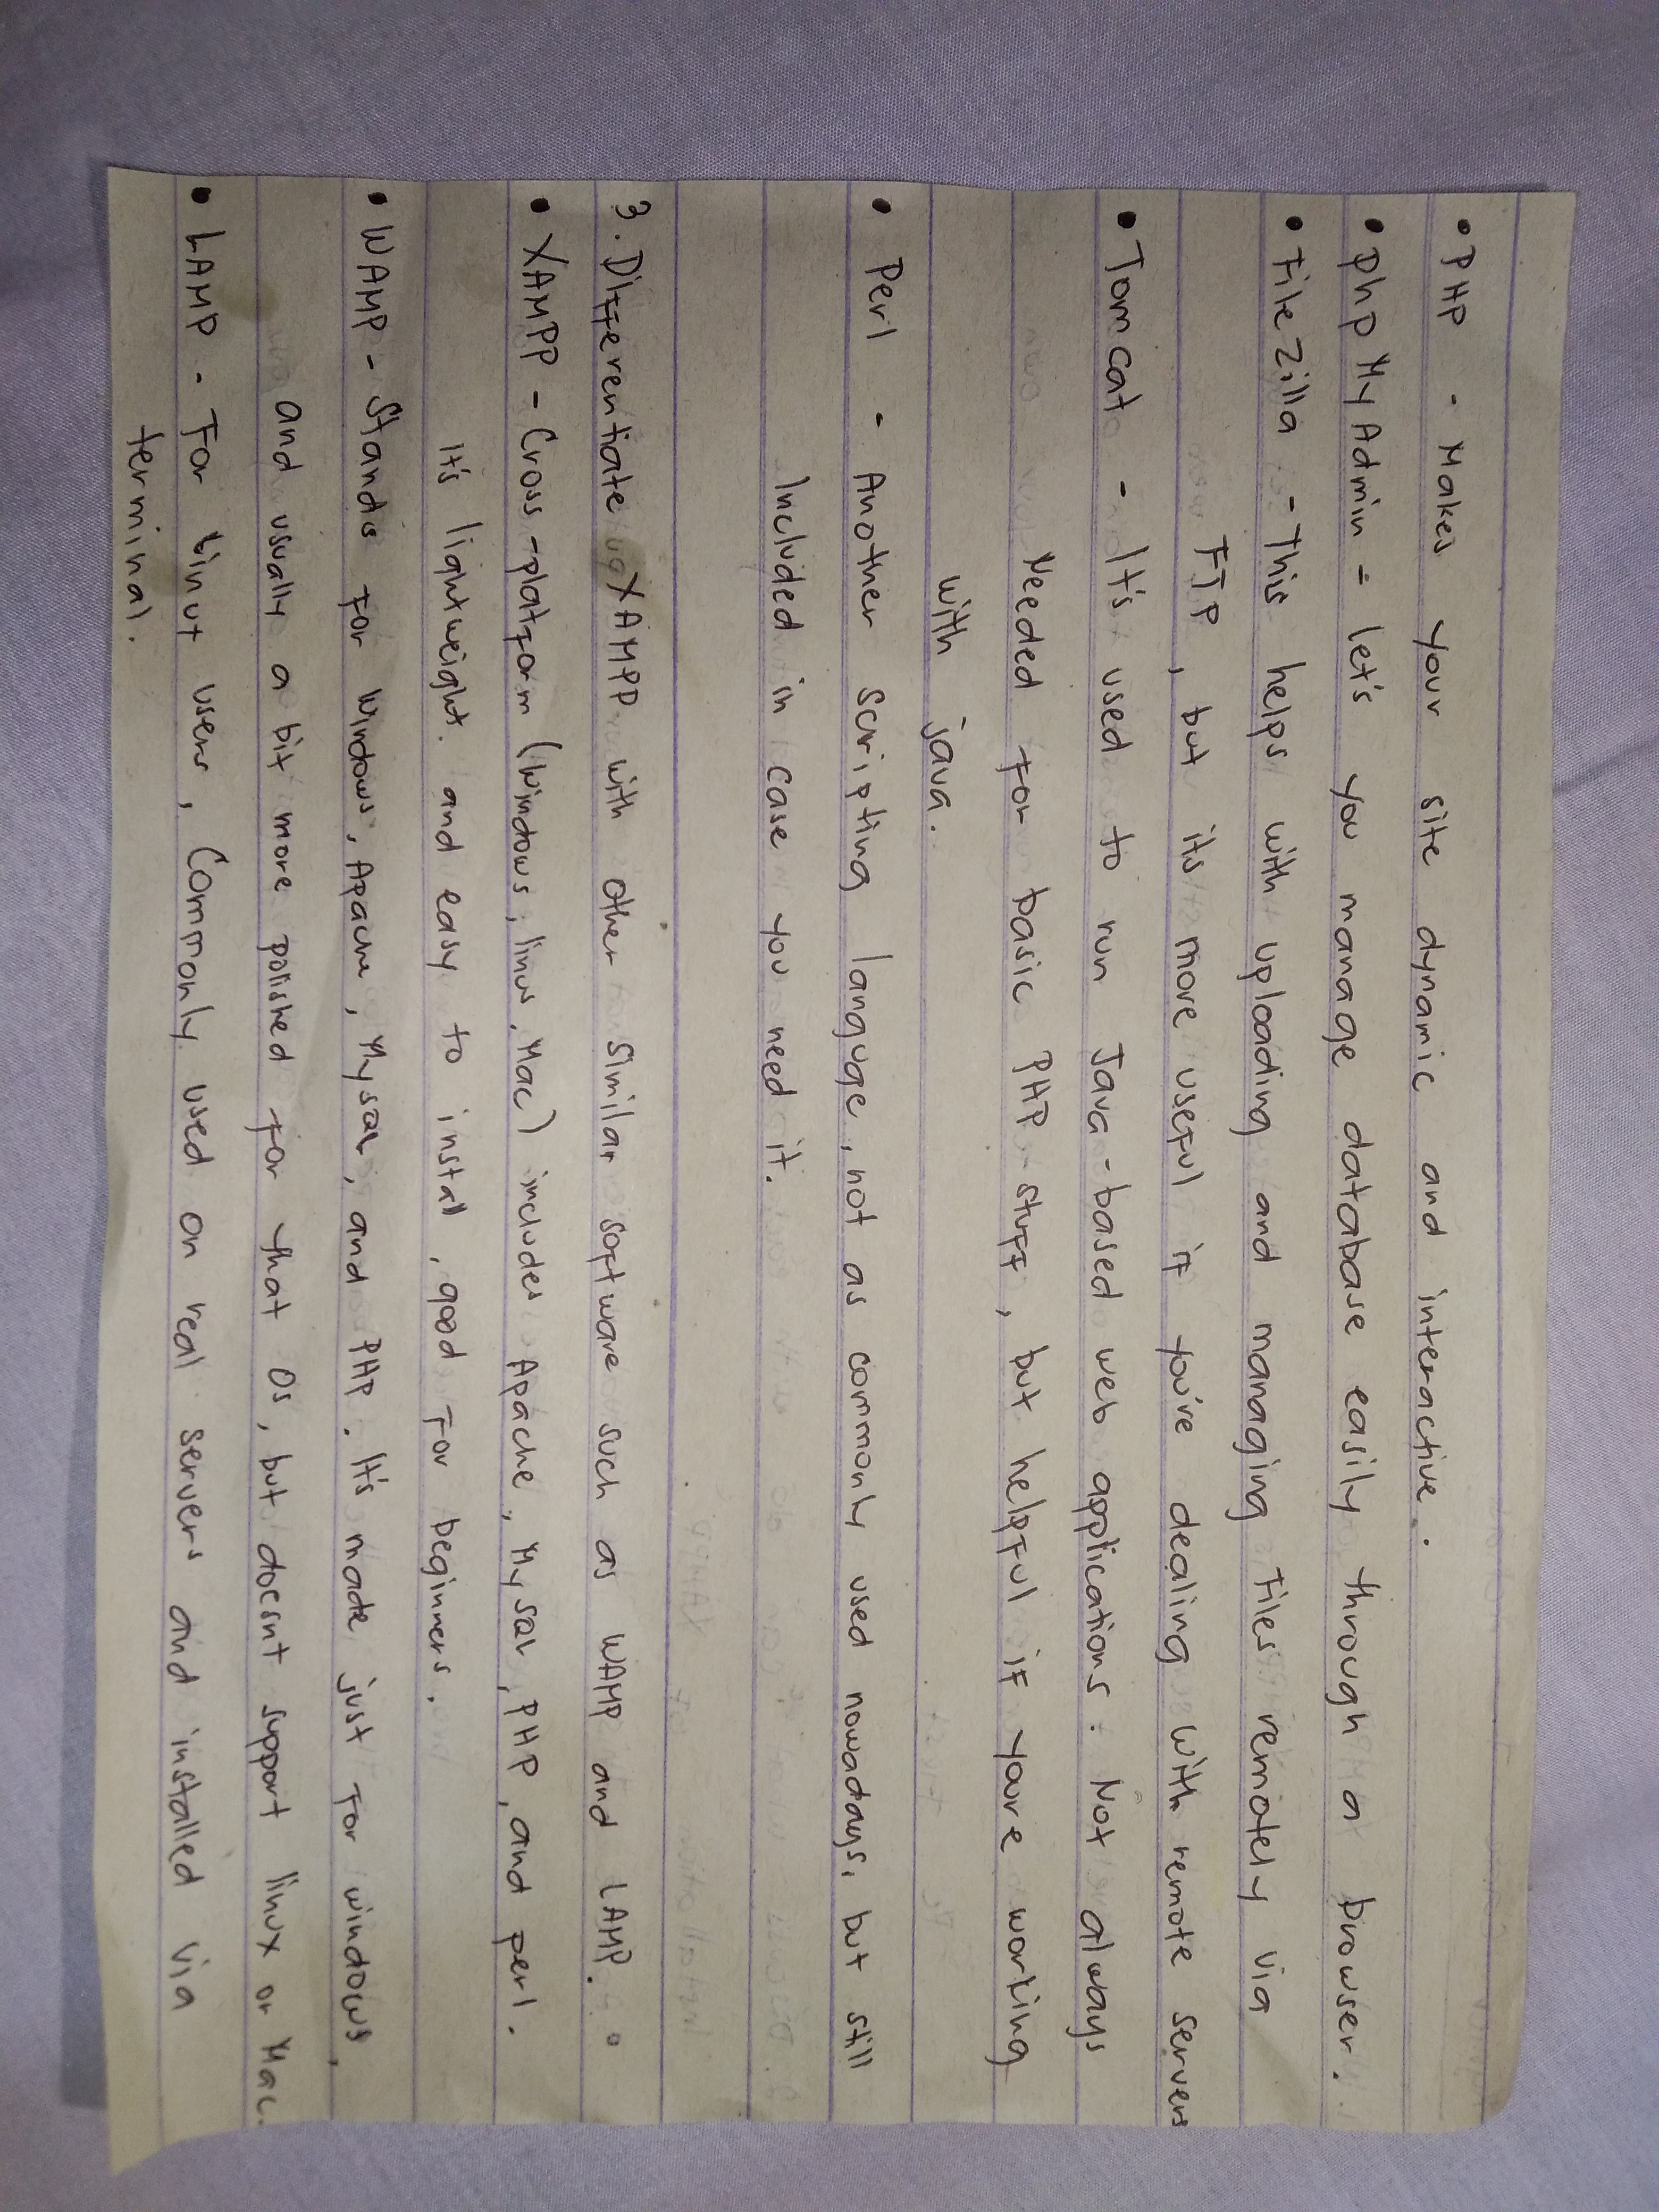 • PHP - Makes your site dynamic and interactive.
• phpMyAdmin - let's you manage database easily through a browser.
• FileZilla - This helps with uploading and managing Files remotely via
FTP, but its more useful if you're dealing with remote servers
• Tomcat - It's used to run Java-based web applications. Not always
Needed for basic PHP stuff, but helpful if youre working
with java.
• Perl - Another scripting languge, not as commonly used nowadays, but still
Included in case you need it.
3. Differentiate XAMPP with other similar software such as WAMP and LAMP.
• XAMPP - Cross-platform (Windows, linus, Mac) includes Apache, MySQL, PHP, and perl.
It's lightweight. and easy to install, good for beginners.
• WAMP - Stands for Windows, Apache, MySQL, and PHP. It's made just for windows,
and usually a bit more polished for that OS, but doesnt support linux or Mac.
• LAMP - For users, Commonly used on real servers and installed via
terminal.